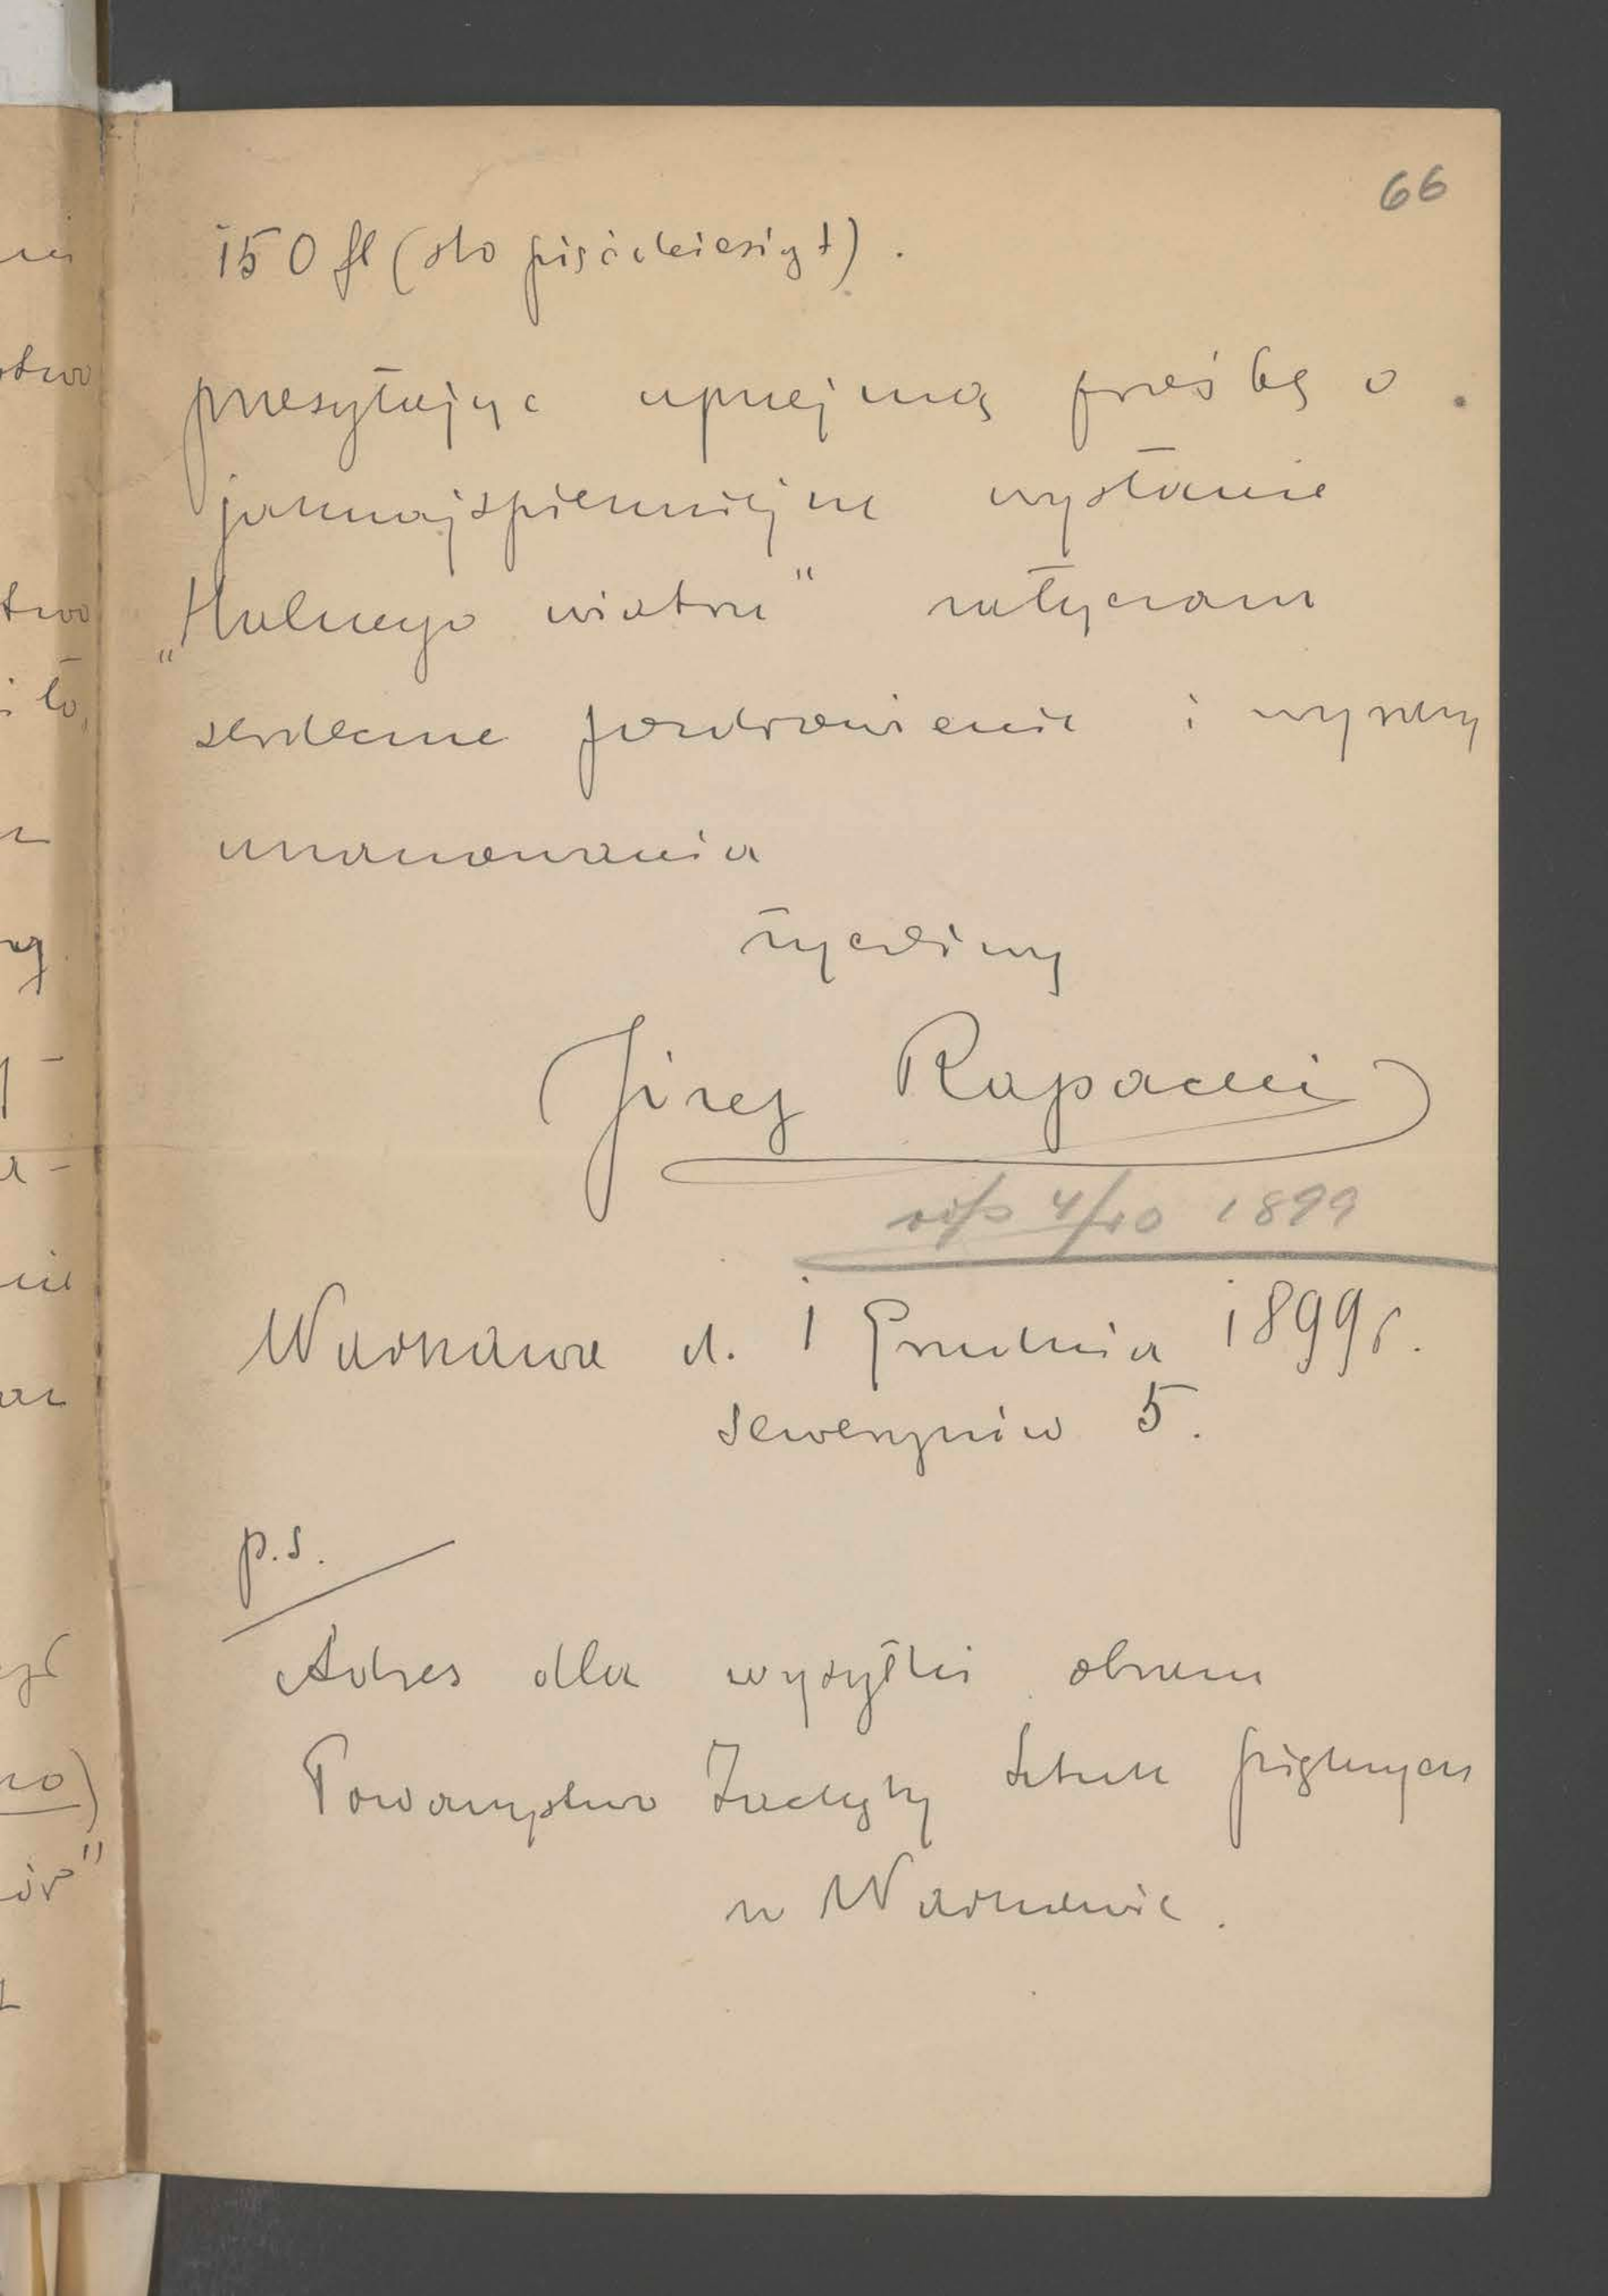 66
150 fl (sto pięćdziesiąt).
przesyłając uprzejmą prośbę o
jaknajspieszniejsze wysłanie
„Halnego wiatru" załączam
serdeczne pozdrowienie i wyrazy
uszanowania
życzliwy
Józef Rapacki
4/10 1899
Warszawa d. 1 Grudnia 1899 r.
Sewerynów 5.
p.s.
Adres dla wysyłki obrazu
Towarzystwo Zachęty Sztuk pięknych
w Warszawie.